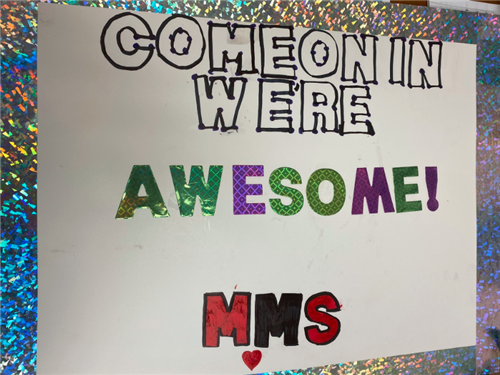 COME ON IN
WE'RE
AWESOME!
MMS